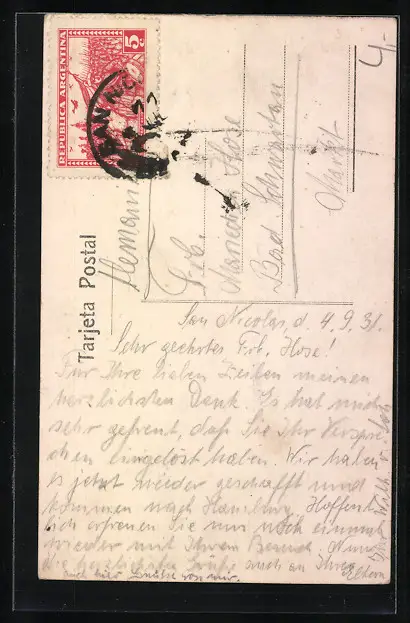 REPUBLICA ARGENTINA
5c
SAN NICO
4,-
Tarjeta Postal
Alemania
Frl.
Hose
Bad Schwartau
Markt
San Nicolas, d. 4.9.31.
Sehr geehrtes Frl. Hose!
Für Ihre lieben Zeilen meinen
herzlichsten Dank. Es hat mich
sehr gefreut, daß Sie Ihr Verspre-
chen eingelöst haben. Wir haben
es jetzt wieder geschafft und
kommen nach Hamburg. Hoffent-
lich erfreuen Sie uns noch einmal
wieder mit Ihrem Besuch. Nun
die herzlichsten Grüße auch an Ihre
Eltern
auch hier Grüße von mir.